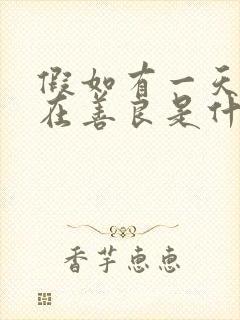 假如有一天
在善良是什
香芋恵恵